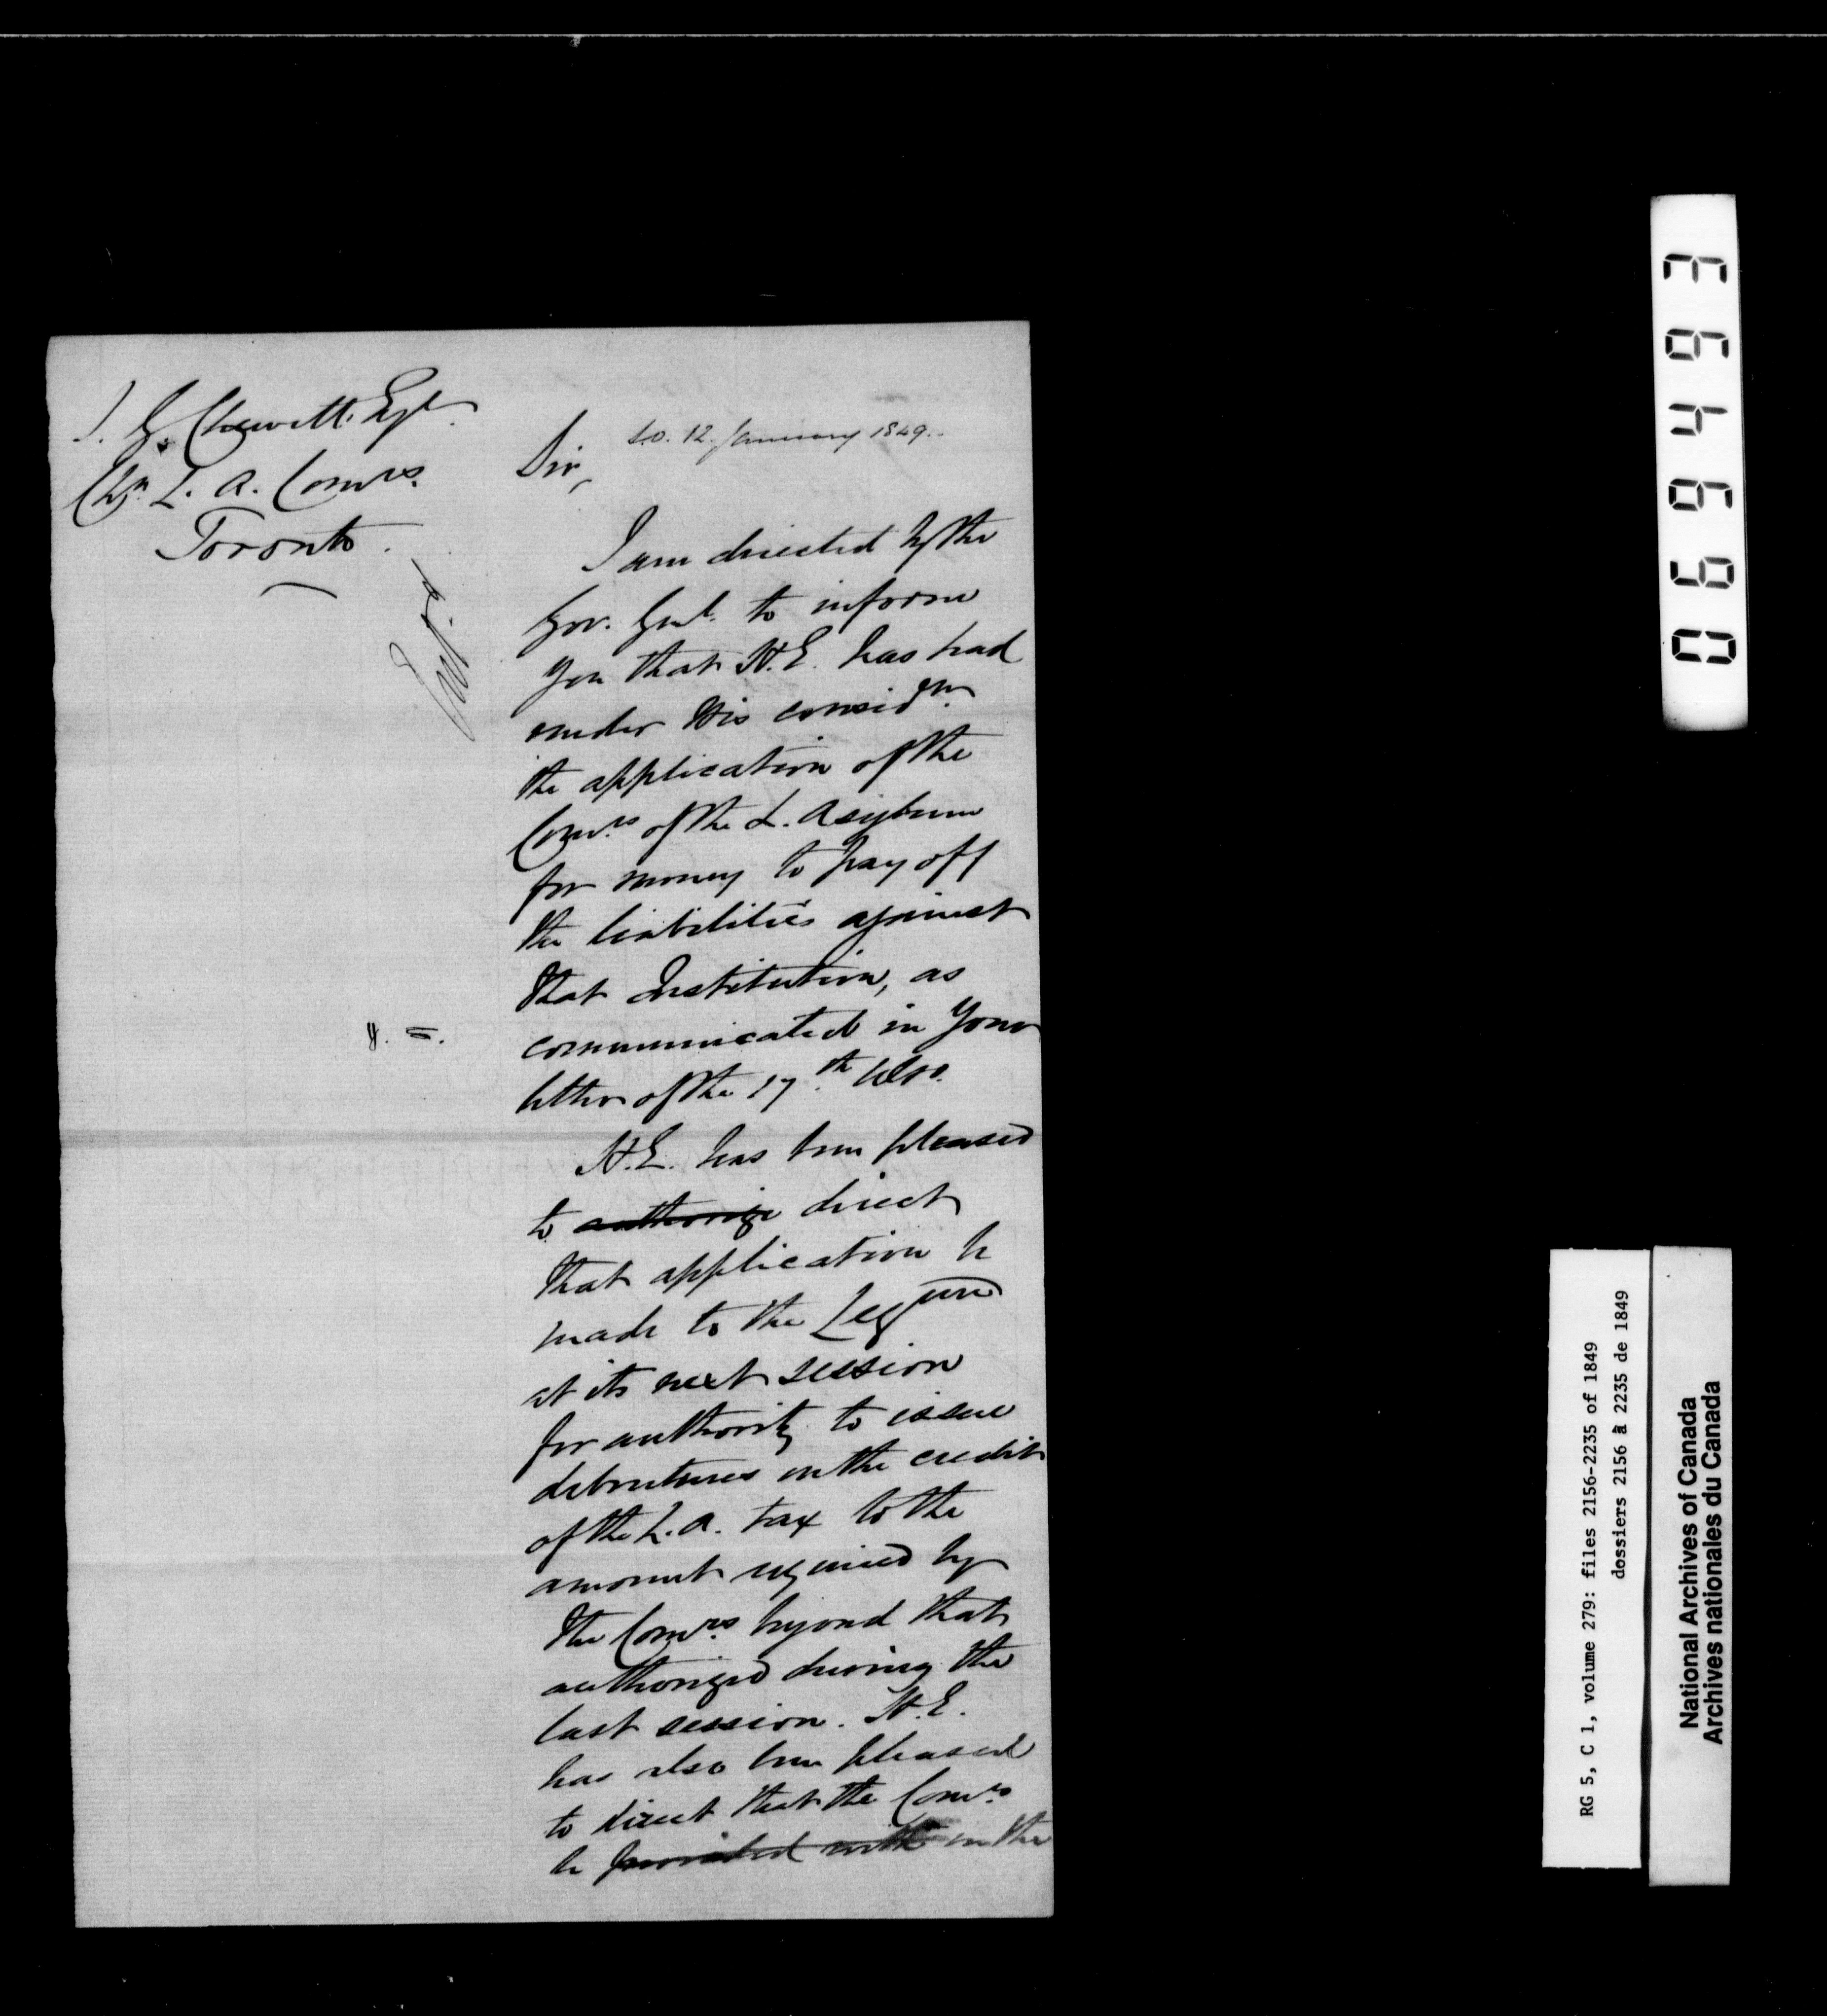 J. G. Chewett Esqr
Chn L. A. Comrs.
Toronto.
S.O. 12. January 1849.
Sir,
I am directed by the
Gov. Genl. to inform
you that H.E. has had
under His considn.
the application of the
Comrs of the L. Asylum
for money to pay off
the liabilities against
that Institution, as
communicated in your
letter of the 17th Ulto.
H.E. has been pleased
to authorize direct
that application be
made to the Legure
at its next session
for authority to issue
debentures on the credit
of the L.A. tax to the
amount required by
the Comrs beyond that
authorized during the
last session. H.E.
has also been pleased
to direct that the Comrs
be provided with in the
069493
RG 5, C 1, volume 279: files 2156-2235 of 1849
dossiers 2156 à 2235 de 1849
National Archives of Canada
Archives nationales du Canada